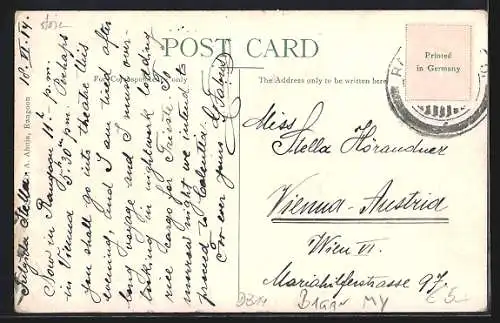 store
POST CARD
For Correspondence only
The Address only to be written here
Printed
in Germany
D. A. Ahuja, Rangoon
10. VI. 14.
Stella
Now in Rangoon 11h p.m.
in Vienna 5.30m pm. Perhaps
you shall go into theatre this
evening, and I am tired after
long voyage and I must over-
looking in nightwork loading
rice cargo for Trieste. To
morrow night we intend to
proceed to Calcutta.
For ever yours
Miss
Stella Horandner
Vienna-Austria
Wien VI.
Mariahilferstrasse 97